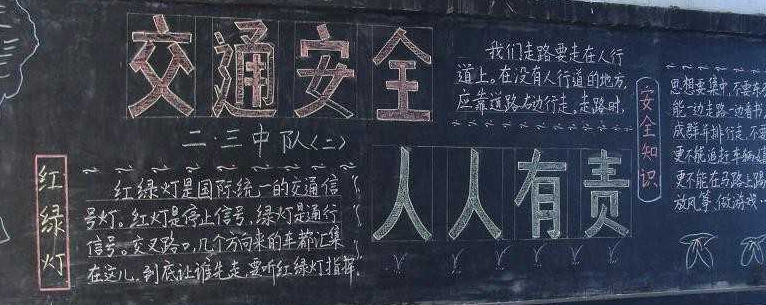 交通安全
人人有责
二·三中队(二)
红绿灯
红绿灯是国际统一的交通信
号灯。红灯是停止信号,绿灯是通行
信号。交叉路口,几个方向来的车都汇集
在这儿,到底让谁先走,要听红绿灯指挥。
安全知识
我们走路要走在人行
道上。在没有人行道的地方,
应靠道路右边行走。走路时,
思想要集中,不要东
能一边走路一边看书,
成群并排行走,不
更不能追赶车辆
更不能在马路上踢
放风筝,做游戏…